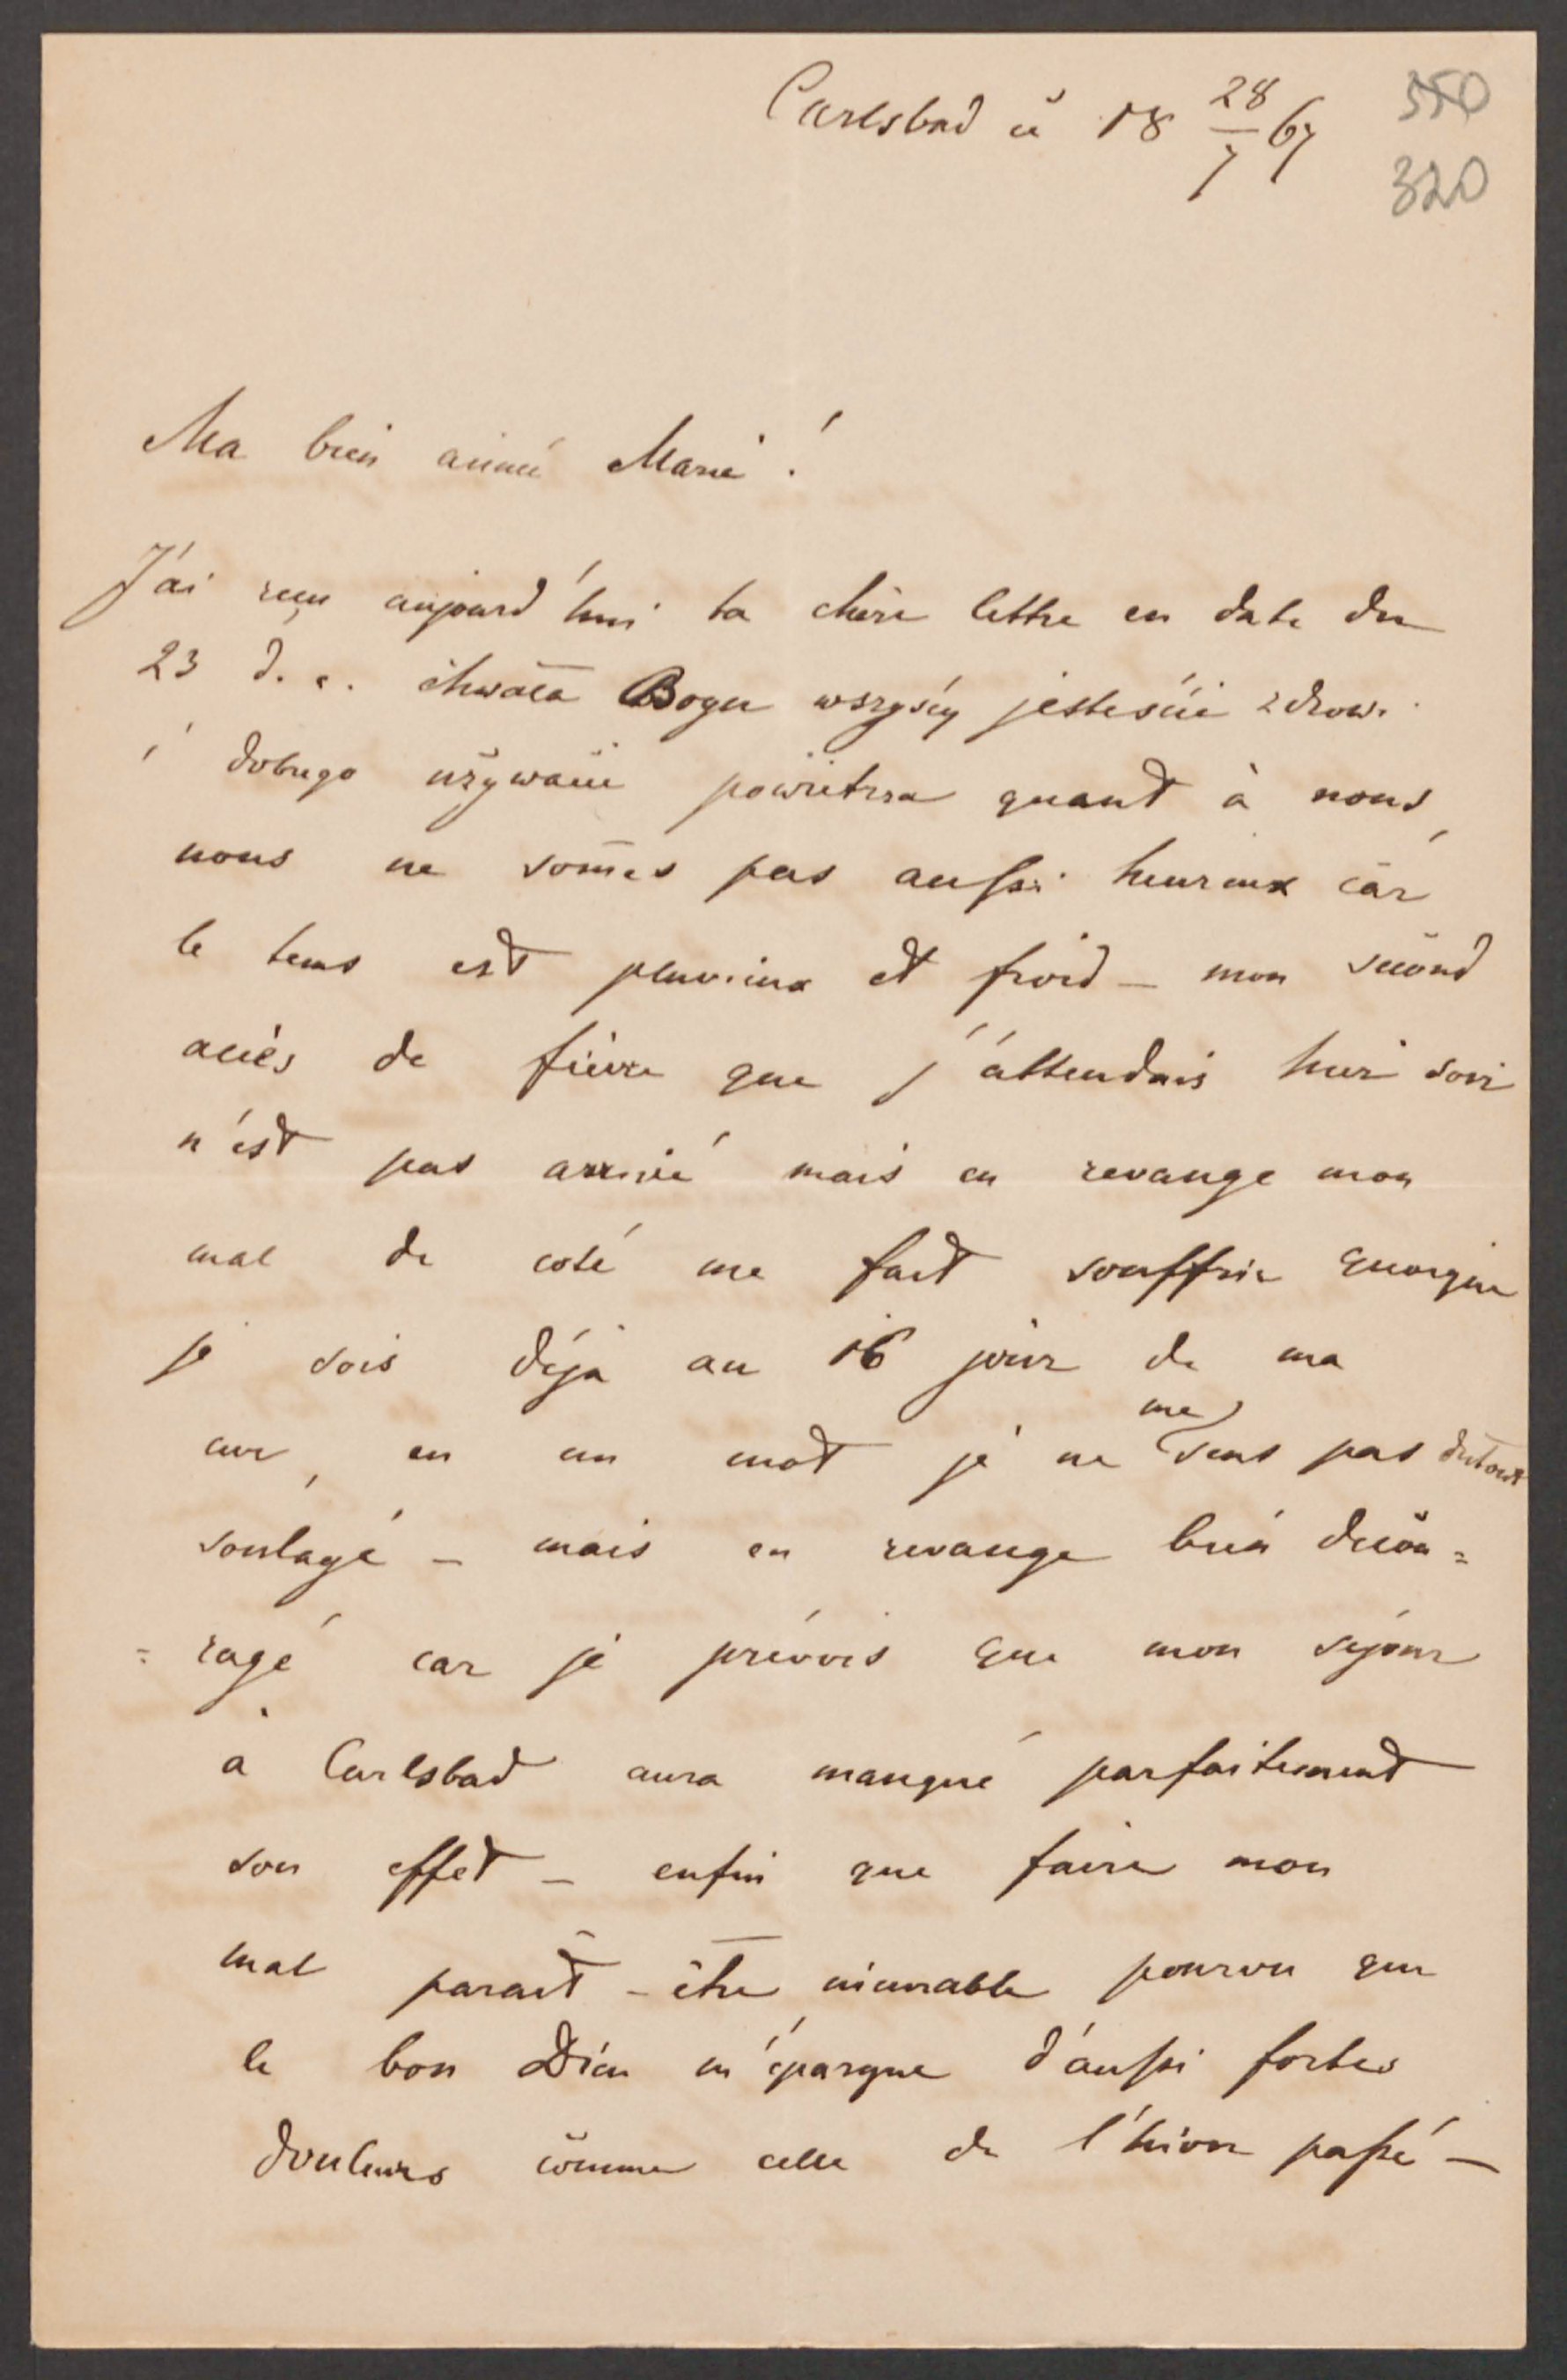 Carlsbad ü 18 28/7 67
350
320
Ma bien aimé Marie!
J'ai reçu aujourd'hui ta chère lettre en date du
23 d. c. chwała Bogu wszyscy jesteście zdrowi
i dobrego używacie powietrza quant à nous,
nous ne som̄es pas aussi heureux car
le tems est pluvieux et froid – mon second
accès de fièvre que j'attendais hier soir
n'est pas arrivé mais en revange mon
mal de coté me fait souffrir quoique
je sois déja au 16 jour de ma
cur, en un mot je ne me sens pas dutout
soulagé – mais en revange bien décou=
=ragé car je prévois que mon séjour
à Carlsbad aura manqué parfaitement
son effet – enfin que faire mon
mal parait – être incurable pourvu que
le bon Dieu m'épargne d'aussi fortes
douleurs comme celle de l'hiver passé –